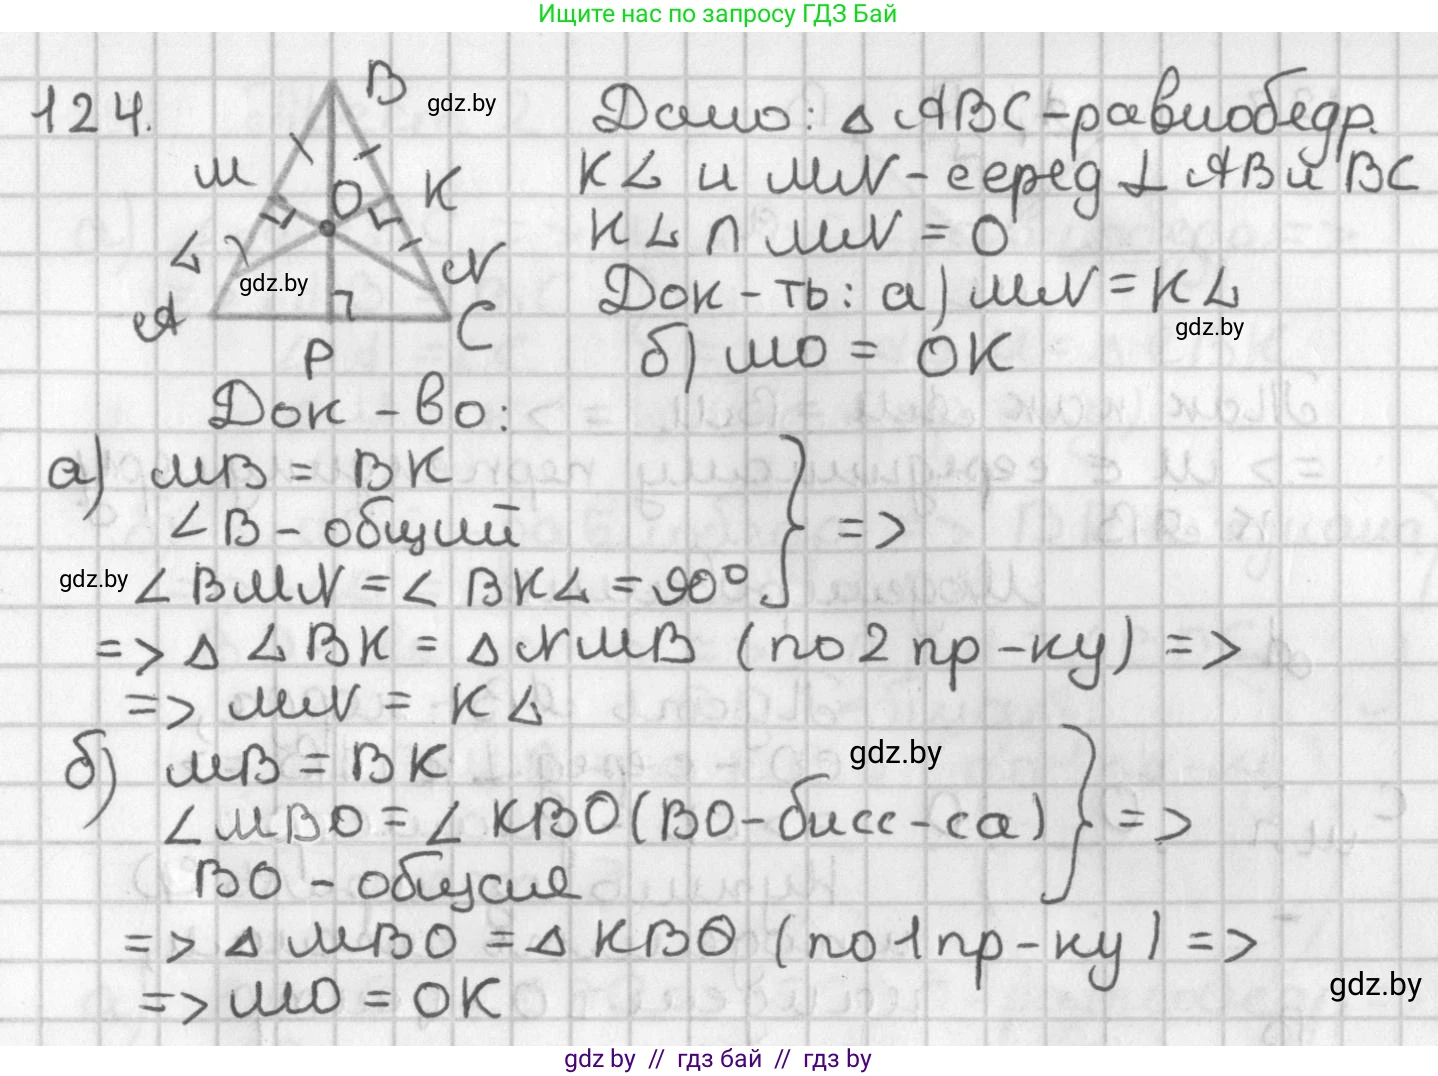 Ищите нас по запросу ГДЗ Бай
124.
B
gdz.by
M
O
K
L
gdz.by
N
A
P
C
Дано: △ ABC - равнобедр.
KL и MN - серед ⊥ AB и BC
KL ∩ MN = O
Док - ть: а) MN = KL
gdz.by
б) MO = OK
Док - во:
а) MB = BK
∠B - общий
gdz.by
∠BMN = ∠BKL = 90° } =>
=> △ LBK = △ NMB (по 2 пр - ку) =>
=> MN = KL
gdz.by
б) MB = BK
∠MBO = ∠KBO (BO - бисс - са) } =>
BO - общая
=> △ MBO = △ KBO (по 1 пр - ку) =>
gdz.by
=> MO = OK
gdz by // гдз бай // гдз by